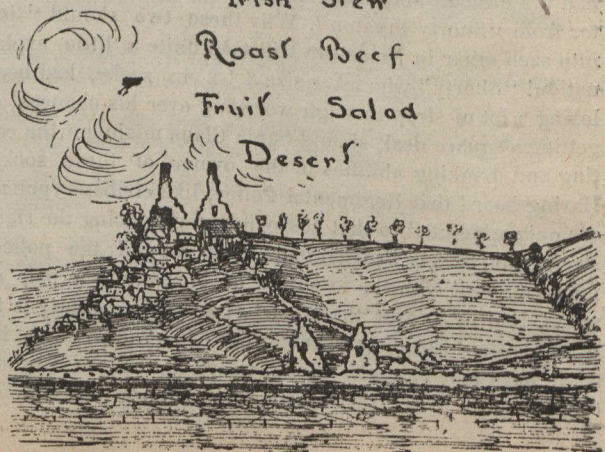 Irish Stew
Roast Beef
Fruit Salod
Desert